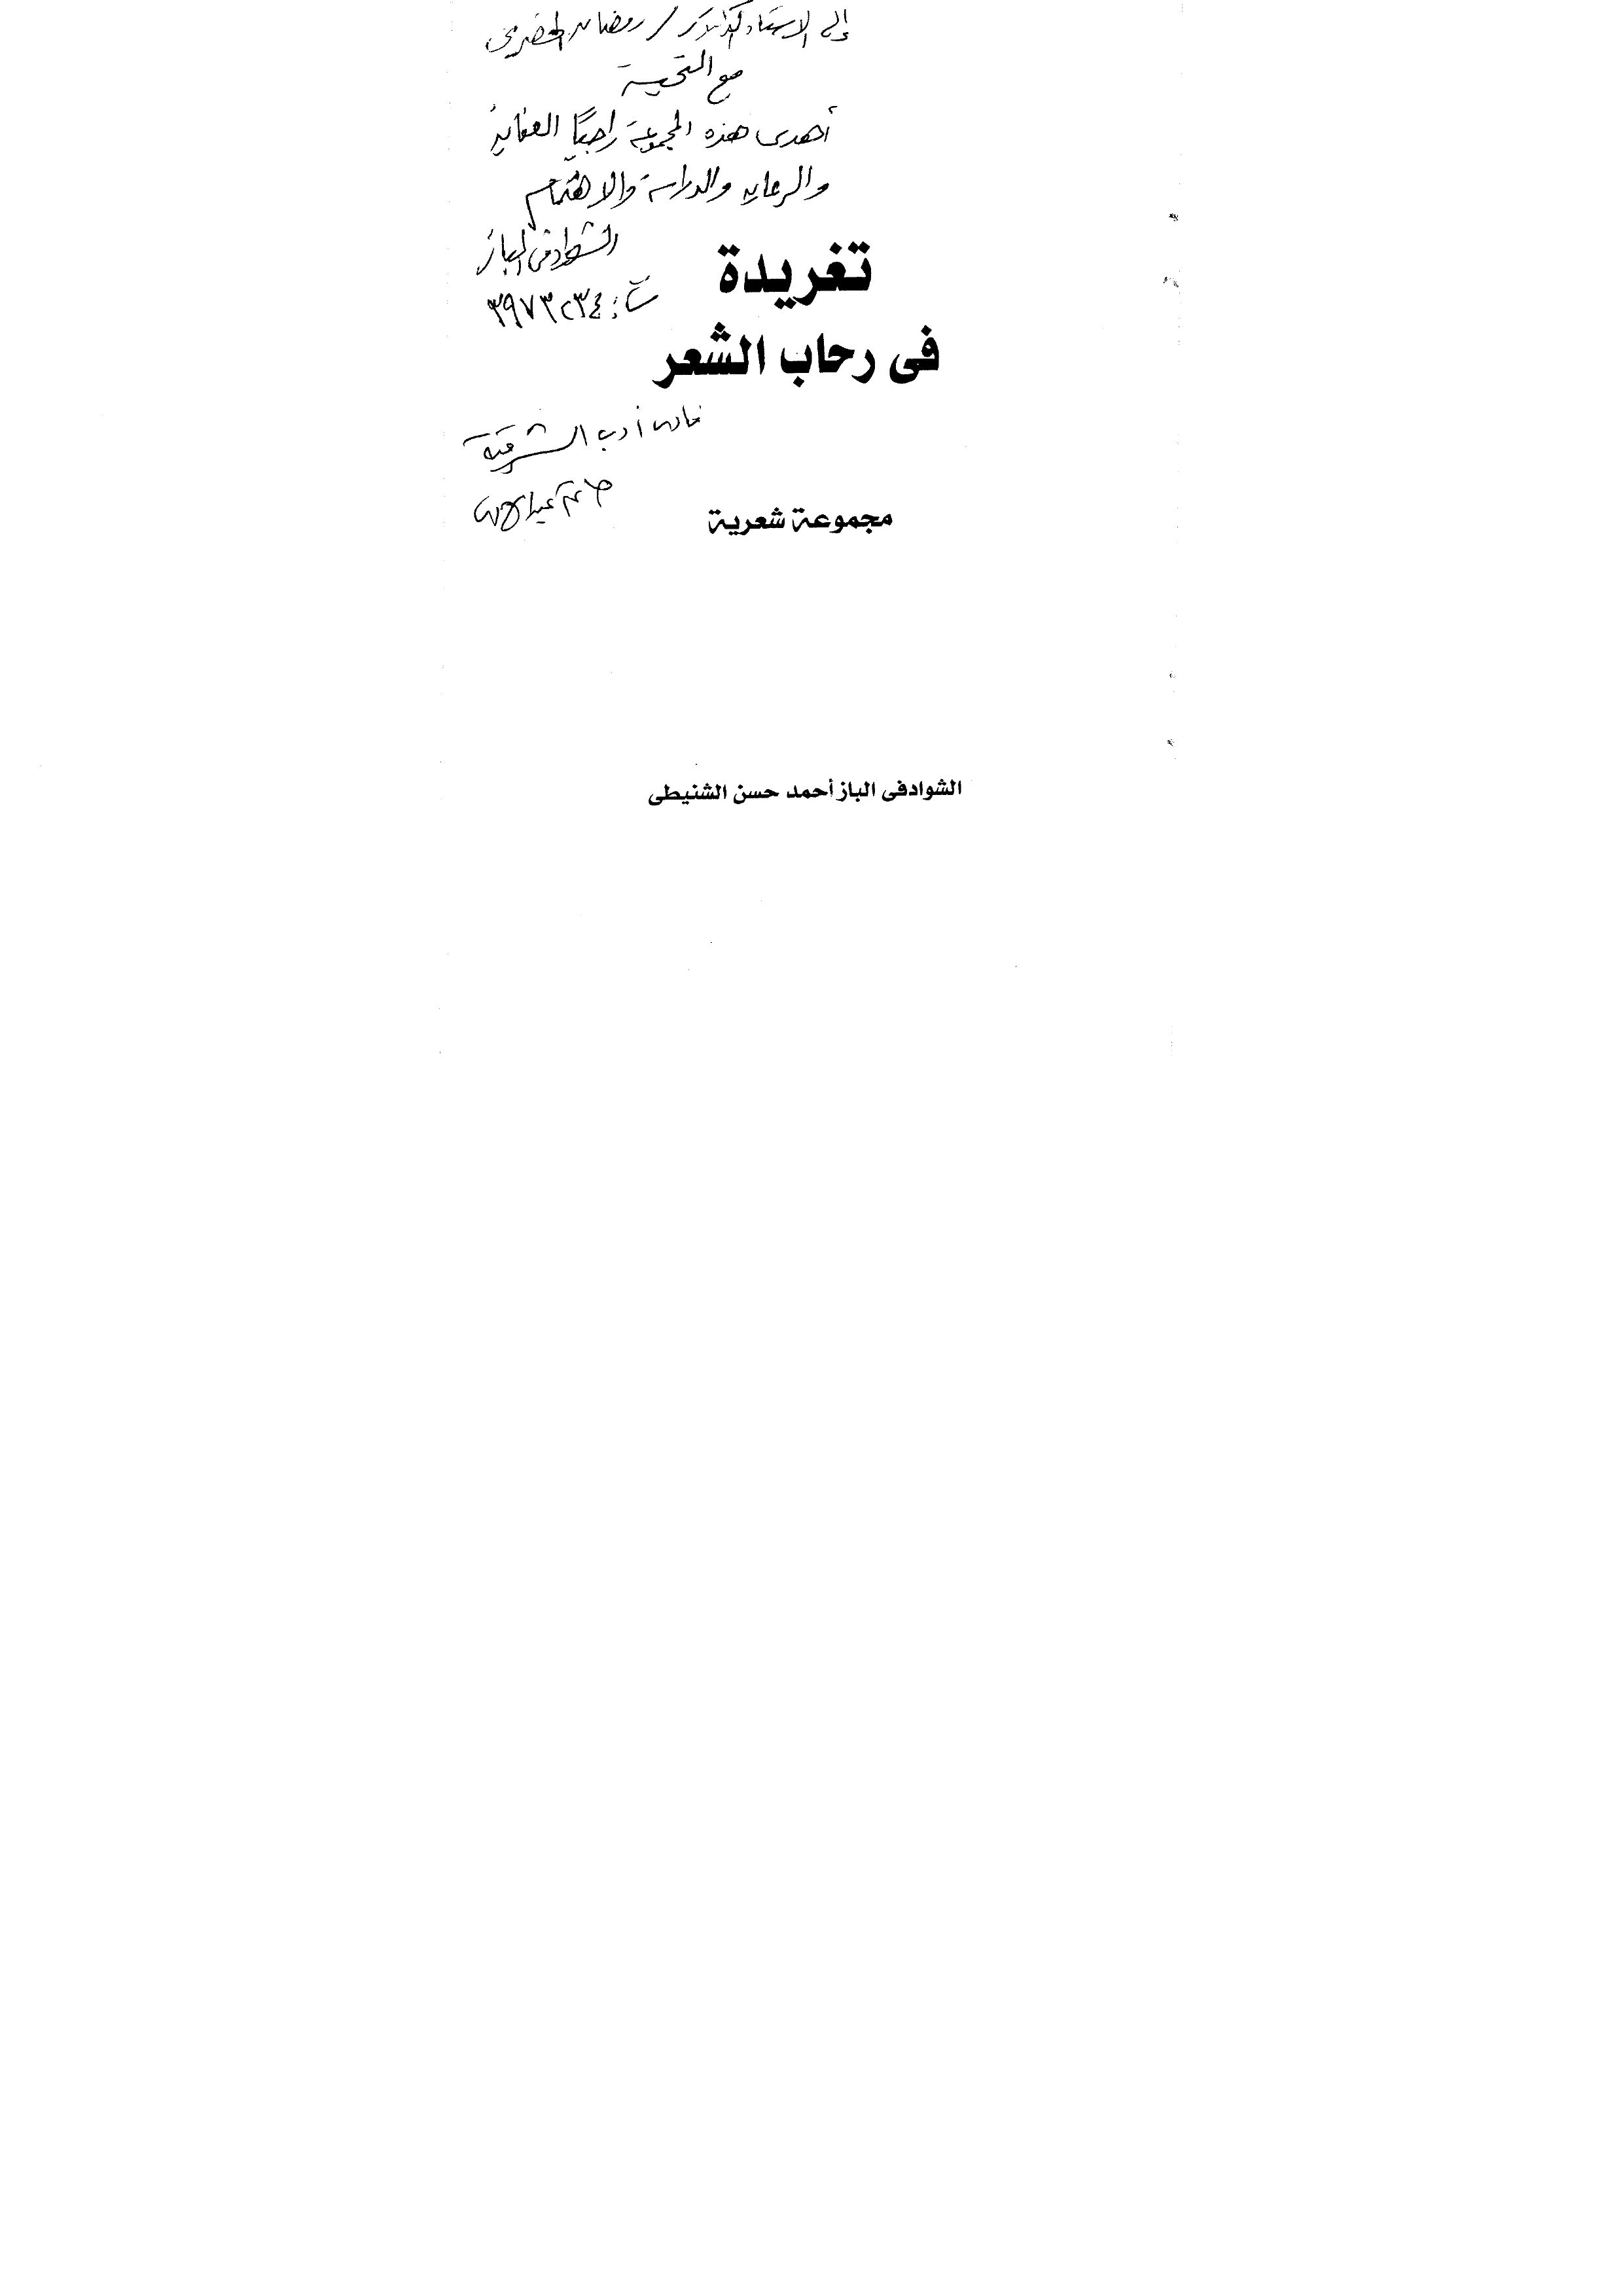 إلى الاستاذ الدكتور / رمضان الحضرى
مع التحية
أهدى هذه المجموعة راجيًا العناية
والرعاية والدراسة والاهتمام
الشوادفى الباز
ت: ٣٩٧٣٢٣٤
تغريدة
فى رحاب الشعر
نادى أدب الشرقية
مجموعة شعرية
الشوادفى الباز أحمد حسن الشنيطى